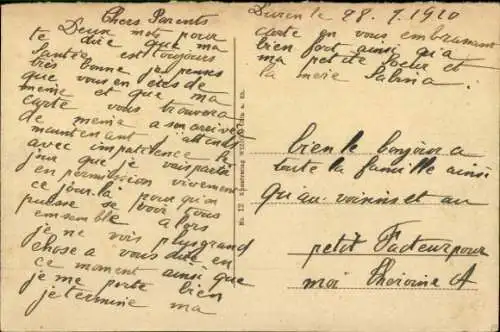 Chers Parents
Deux mots pour
te dire que ma
Santée est toujours
très bonne je penses
que vous en êtes de
meme et que ma
carte vous trouvera
de meme a son arrivée
maintenant j'attend
avec impatience le
jour que je vais partir
en permission vivement
ce jour la pour qu'on
puisse se voir tous
ensemble alors
je ne vois plus grand
chose a vous dire en
ce moment ainsi que
je me porte bien
je termine ma
Duren le 28. 7. 1920
carte en vous embrassant
bien fort ainsi qu'a
ma petite Soeur et
la mère Sabina
bien le bonjour a
toute la famille ainsi
qu'au voisins et au
petit Facteur pour
moi
No. 12